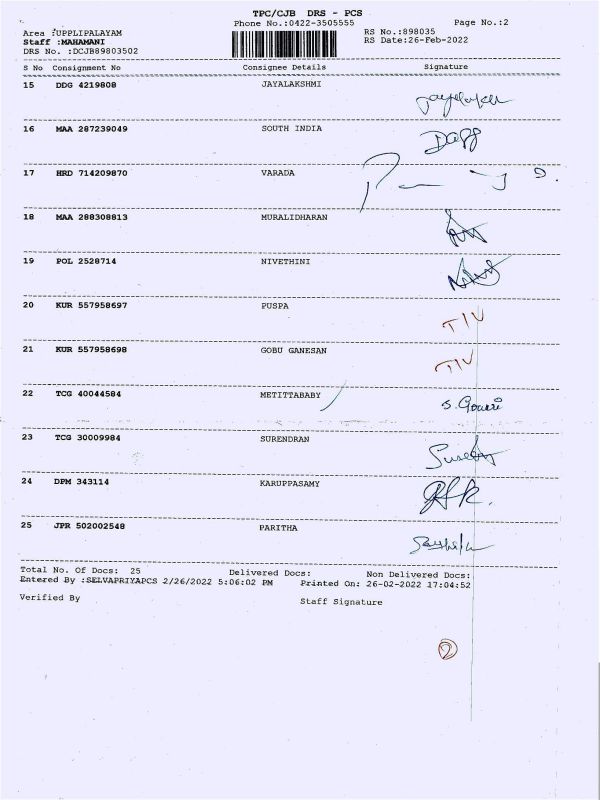 TPC/CJB DRS - PCS
Phone No.:0422-3505555 Page No.:2
Area :UPPLIPALAYAM RS No.:898035
Staff :MAHAMANI RS Date:26-Feb-2022
DRS No. :DCJB89803502
S No Consignment No Consignee Details Signature
15 DDG 4219808 JAYALAKSHMI
16 MAA 287239049 SOUTH INDIA
17 HRD 714209870 VARADA
18 MAA 288308813 MURALIDHARAN
19 POL 2528714 NIVETHINI
20 KUR 557958697 PUSPA TIV
21 KUR 557958698 GOBU GANESAN TIV
22 TCG 40044584 METITTABABY S. Gowri
23 TCG 30009984 SURENDRAN
24 DPM 343114 KARUPPASAMY
25 JPR 502002548 PARITHA
Total No. Of Docs: 25 Delivered Docs: Non Delivered Docs:
Entered By :SELVAPRIYAPCS 2/26/2022 5:06:02 PM Printed On: 26-02-2022 17:04:52
Verified By Staff Signature
2